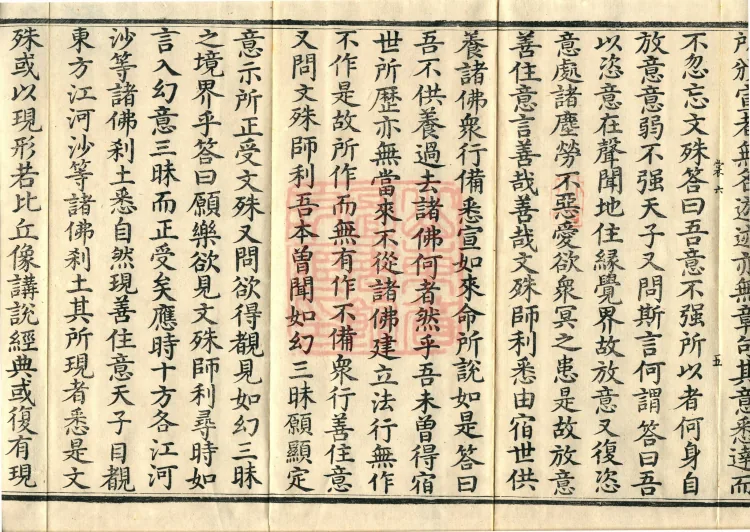 所頒宣者無名迹迹亦無章句其意悉達而
不忽忘文殊答曰吾意不强所以者何身自
放意意弱不强天子又問斯言何謂答曰吾
以恣意在聲聞地住緣覺界故放意又復恣
意處諸塵勞不惡愛欲衆冥之患是故放意
善住意言善哉善哉文殊師利悉由宿世供
養諸佛衆行備悉宣如來命所說如是答曰
吾不供養過去諸佛何者然乎吾未曾得宿
世所歷亦無當來不從諸佛建立法行無作
不作是故所作而無有作不備衆行善住意
又問文殊師利吾本曾聞如幻三昧願顯定
意示所正受文殊又問欲得覩見如幻三昧
之境界乎答曰願樂欲見文殊師利尋時如
言入幻意三昧而正受矣應時十方各江河
沙等諸佛刹土悉自然現善住意天子目覩
東方江河沙等諸佛刹土其所現者悉是文
殊或以現形若比丘像講說經典或復有現
棠六
五